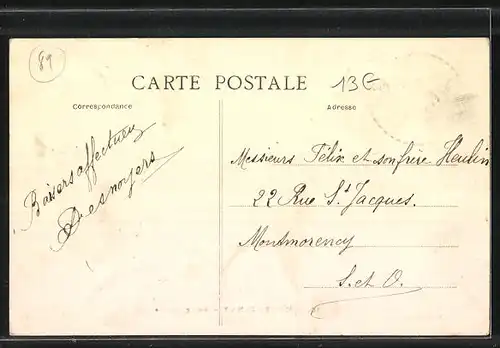 89
CARTE POSTALE
13E
Correspondance
Adresse
Baisers affectueux
Desnoyers
Messieurs Félix et son frère Heulin
22 Rue St Jacques.
Montmorency
S. et O.